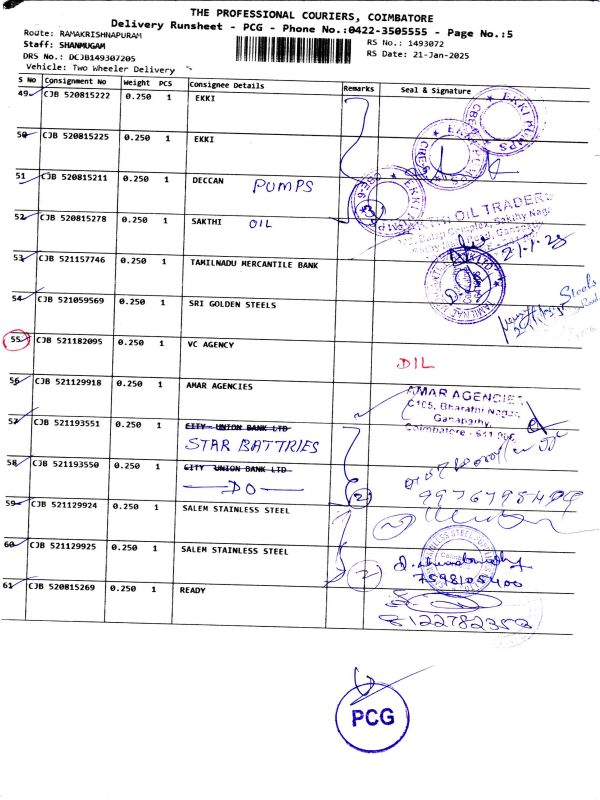 THE PROFESSIONAL COURIERS, COIMBATORE
Delivery Runsheet - PCG - Phone No.:0422-3505555 - Page No.:5
Route: RAMAKRISHNAPURAM
RS No.: 1493072
Staff: SHANMUGAM
RS Date: 21-Jan-2025
DRS No.: DCJB149307205
Vehicle: Two Wheeler Delivery
S No Consignment No Weight PCS Consignee Details Remarks Seal & Signature
49 CJB 520815222 0.250 1 EKKI
EKKI PUMPS
50 CJB 520815225 0.250 1 EKKI
EKKI PUMPS
CBE-6
51 CJB 520815211 0.250 1 DECCAN PUMPS
CBE-6 EKKI PUMPS
3
52 CJB 520815278 0.250 1 SAKTHI OIL
OIL TRADERS
Complex, Sakthy Nagar
Ganapathy
53 CJB 521157746 0.250 1 TAMILNADU MERCANTILE BANK
54 CJB 521059569 0.250 1 SRI GOLDEN STEELS
Steels
55 CJB 521182095 0.250 1 VC AGENCY
DIL
56 CJB 521129918 0.250 1 AMAR AGENCIES
AMAR AGENCIES
C105, Bharathi Nagar,
Ganapathy,
Coimbatore - 641 006
57 CJB 521193551 0.250 1 CITY UNION BANK LTD
STAR BATTRIES
58 CJB 521193550 0.250 1 CITY UNION BANK LTD
DO
2
59 CJB 521129924 0.250 1 SALEM STAINLESS STEEL
60 CJB 521129925 0.250 1 SALEM STAINLESS STEEL
2
7598105400
61 CJB 520815269 0.250 1 READY
8122782353
PCG